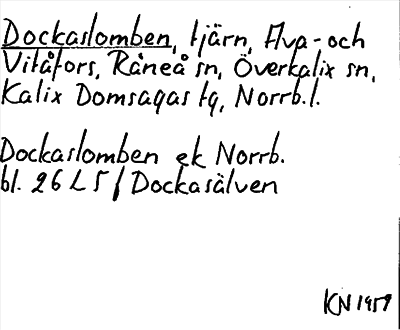 Dockaslomben, tjärn, Alva- och
Vitåfors, Råneå sn, Överkalix sn,
Kalix Domsagas tg, Norrb. l.
Dockaslomben ek Norrb.
bl. 26 L 5 / Dockasälven
KN 1959